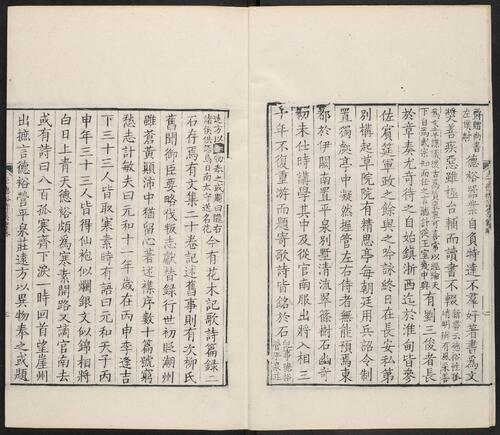 德裕器業自負特達不羣好著書為文
獎善疾惡雖極台輔而讀書不輟
有劉三復者長
於章奏尤奇待之自始鎮浙西迄於淮甸皆參
佐賓筵軍政之餘與之吟詠終日在長安私第
別構起草院院有精思亭每朝廷用兵詔令制
置獨處亭中凝然握管左右侍者無能預焉東
都於伊闕南置平泉別墅清流翠篠樹石幽奇
初未仕時講學其中及從官南服出將入相三
十年不復重游而題寄歌詩皆銘於石
遠方以物奉之或題曰隴右
諸侯供語鳥日南太守送名花
今有花木記歌詩篇錄二
石存焉有文集二十卷記述舊事則有次柳氏
舊聞御臣要略伐叛志獻替錄行世初貶潮州
雖蒼黃顛沛中猶留心著述雜序數十篇號窮
愁志計敏夫曰元和十一年歲在丙申李逢吉
下三十三人皆取寒素時有語曰元和天子丙
申年三十三人皆得仙袍似爛銀文似錦相將
白日上青天德裕頗為寒素開路又謫官南去
或有詩曰八百孤寒齊下淚一時回首望崖州
出摭言德裕營平泉莊遠方以異物奉之或題